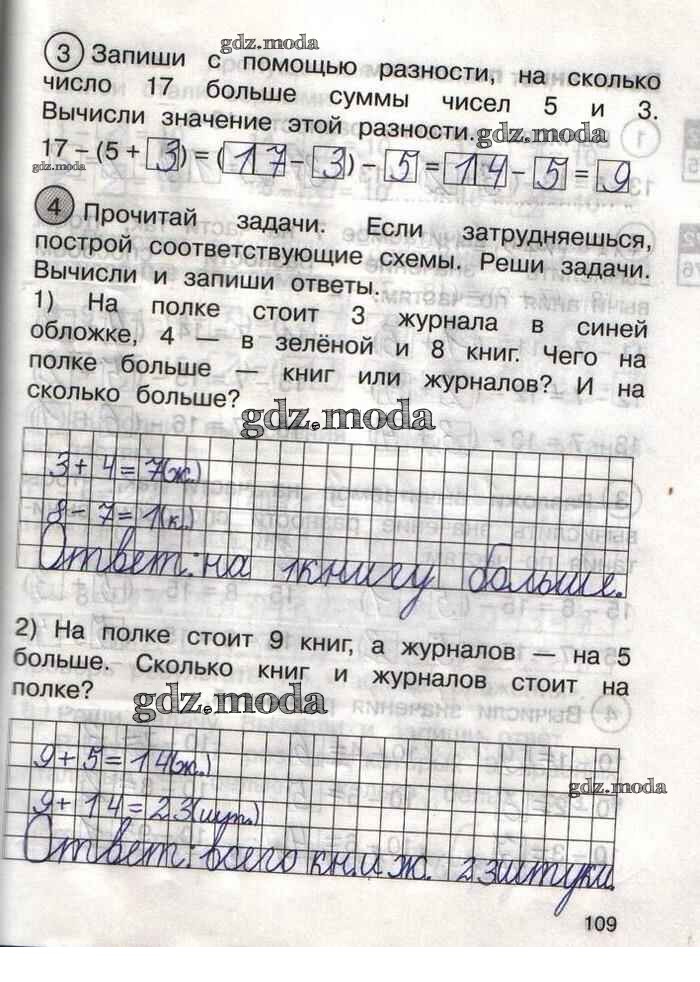 gdz.moda
3 Запиши с помощью разности, на сколько
число 17 больше суммы чисел 5 и 3.
Вычисли значение этой разности. gdz.moda
17 – (5 + 3) = (17 – 3) – 5 = 14 – 5 = 9
gdz.moda
4 Прочитай задачи. Если затрудняешься,
построй соответствующие схемы. Реши задачи.
Вычисли и запиши ответы.
1) На полке стоит 3 журнала в синей
обложке, 4 — в зелёной и 8 книг. Чего на
полке больше — книг или журналов? И на
сколько больше?
gdz.moda
3 + 4 = 7(ж.)
8 – 7 = 1(к.)
Ответ: на 1 книгу больше.
2) На полке стоит 9 книг, а журналов — на 5
больше. Сколько книг и журналов стоит на
полке?
gdz.moda
9 + 5 = 14(ж.)
gdz.moda
9 + 14 = 23(шт.)
Ответ: всего кн. и ж. 23 штуки.
109